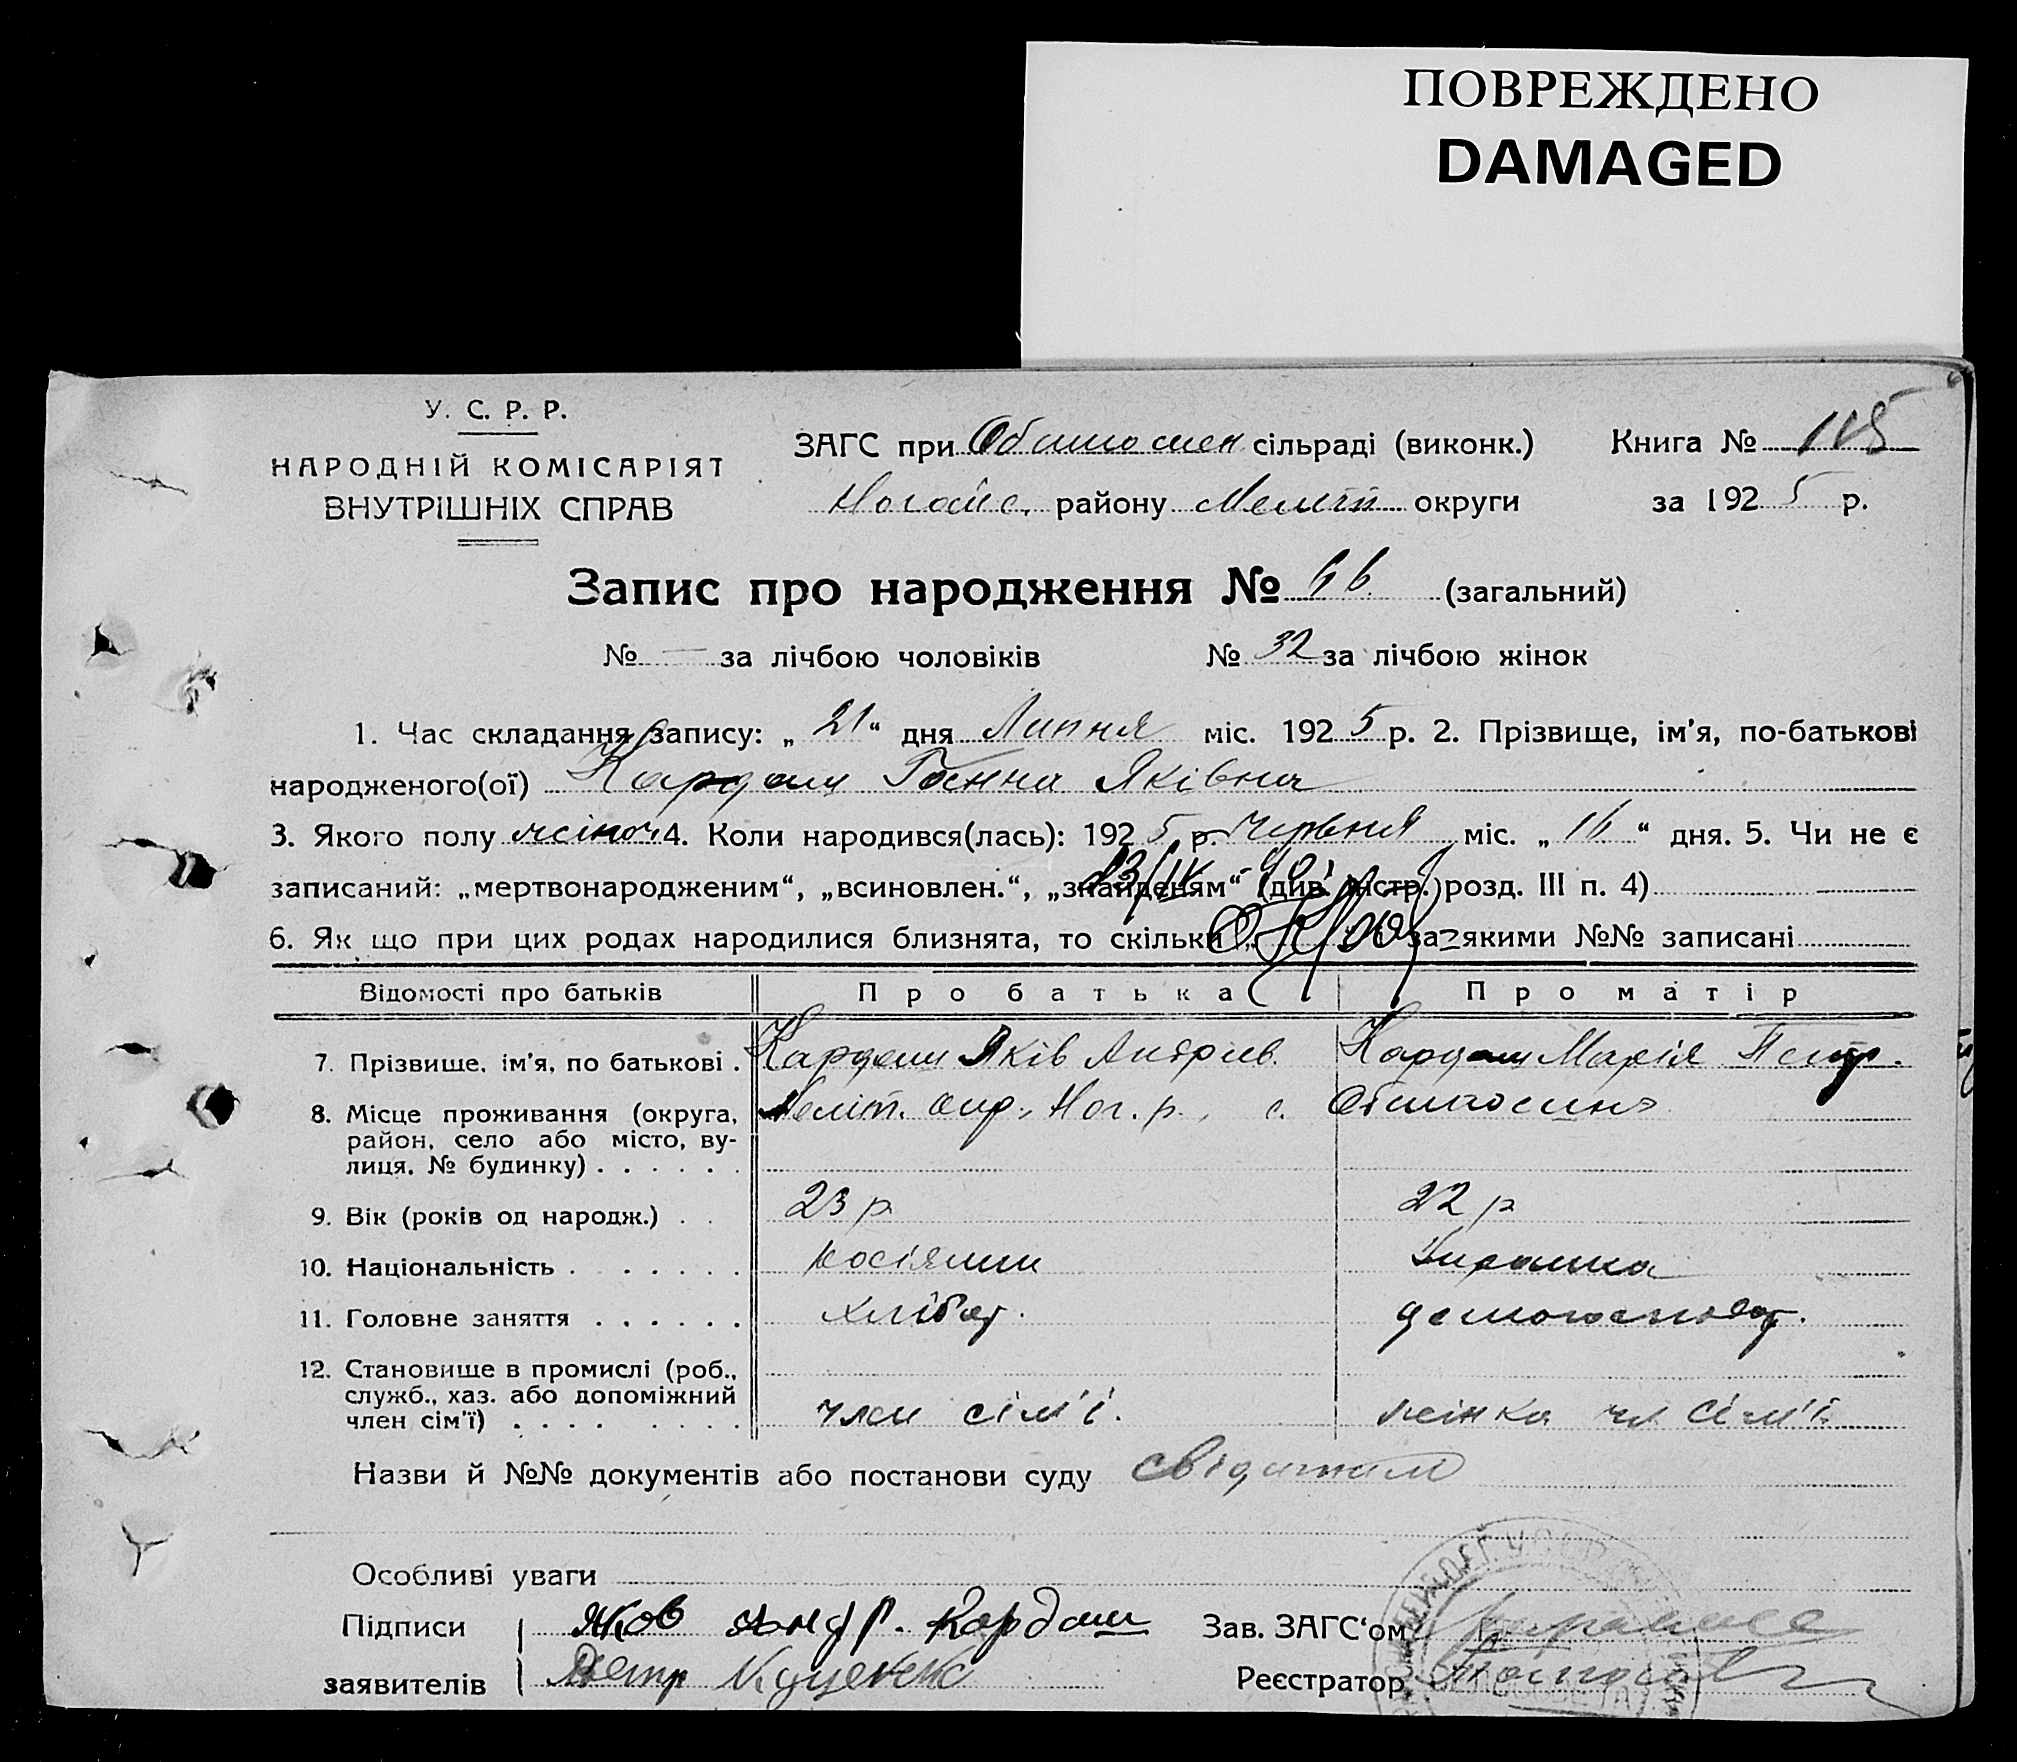 ПОВРЕЖДЕНО
DAMAGED
У. С. Р. Р.
НАРОДНІЙ КОМІСАРІЯТ
ВНУТРІШНІХ СПРАВ
ЗАГС при сільраді (виконк.) Книга №
Ногайс. району Меліт округи за 1925 р.
Запис про народження № 66 (загальний)
№ — за лічбою чоловіків № 32 за лічбою жінок
1. Час складання запису: „21“ дня Липня міс. 1925 р. 2. Прізвище, ім'я, по-батькові
народженого(ої) Кардаш Ганна Яківна
3. Якого полу жіноч 4. Коли народився(лась): 1925 р. Червня міс. „16“ дня. 5. Чи не є
записаний: „мертвонародженим“, „всиновлен.“, „знайденям“ (див. інстр. розд. III п. 4)
6. Як що при цих родах народилися близнята, то скільки за якими №№ записані
Відомості про батьків Про батька Про матір
7. Прізвище, ім'я, по батькові . Кардаш Яків Андрієв. Кардаш Марія Петр.
8. Місце проживання (округа, Меліт. окр., Ног. р., с.
район, село або місто, ву-
лиця, № будинку) . . . . . .
9. Вік (років од народж.) . . 23 р 22 р
10. Національність . . . . . . Українка
11. Головне заняття . . . . . . хлібор. домогосподар.
12. Становище в промислі (роб.,
служб., хаз. або допоміжний
член сім'ї) . . . . . . . член сім'ї. жінка чл сім'ї
Назви й №№ документів або постанови суду
Особливі уваги
Підписи Яков Андр. Кардаш Зав. ЗАГС'ом
заявителів Петр Куценко Реєстратор